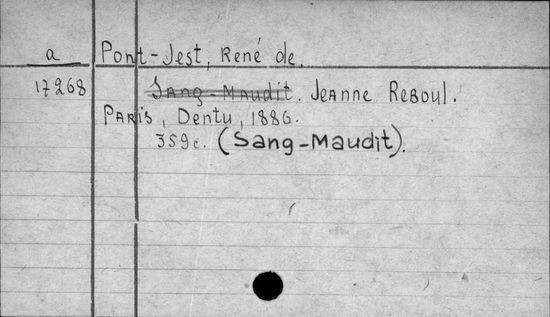 a Pont-Jest, René de.
17268 Sang-Maudit. Jeanne Reboul.
Paris, Dentu, 1886.
359c. (Sang-Maudit).